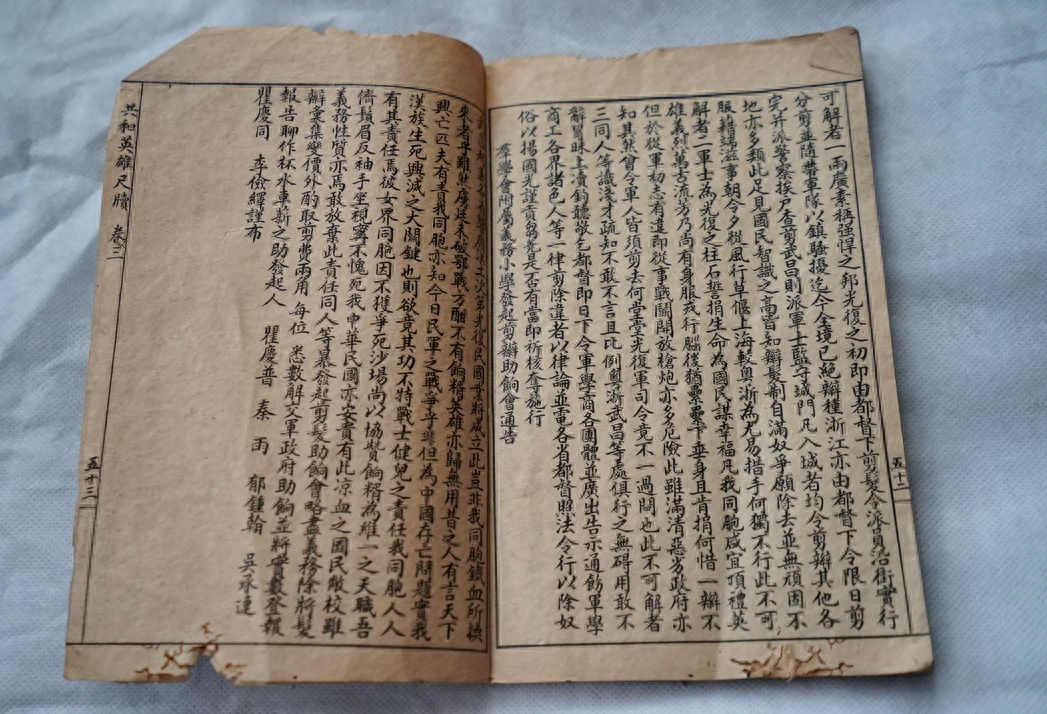 可解者一兩廣素称强悍之邦光復之初即由都督下剪髮令派員沿街實行
分剪並隨帶軍隊以鎮騷擾迄今全境已絕辮種浙江亦由都督下令限日剪
完并派警察挨戶查剪武昌則派軍士監守城門凡入城者均令剪辮其他各
地亦多類此足見國民智識之高皆知辮髮制自滿奴爭願除去並無頑固不
服藉端滋事朝令夕從風行草偃上海較粤浙為尤易措手何獨不行此不可
解者二軍士為光復之柱石誓捐生命為國民謀幸福凡我同胞咸宜頂禮英
雄義烈萬古流芳乃尚有身服戎行腦後猶纍纍下垂身且肯捐何惜一辮不
但於從軍初志有違即從事戰鬬開放槍炮亦多危險此雖滿清惡劣政府亦
知其然曾令軍人皆須剪去何堂堂光復軍司令竟不一過問也此不可解者
三同人等識淺才疏知不敢不言且比例粤浙武昌等處俱行之無碍用敢不
辭冒昧上瀆鈞聽敬乞都督即日下令軍學商各團體並廣出告示通飭軍學
商工各界諸色人等一律剪除違者以律論並電各省都督照法令行以除奴
俗以揚國光謹貢芻蕘是否有當即祈核奪施行
羣學會附屬義務小學發起剪辮助餉會通告
次第光復民國業將成立此豈非我同胞鐵血所換
來者乎雖然虜廷未破鄂戰方酣不有餉糈英雄亦歸無用昔之人有言天下
興亡匹夫有責我同胞亦知今日民軍之戰爭乎非但為中國存亡問題實我
漢族生死興滅之大關鍵也則欲竟其功不特戰士健兒之責任我同胞人人
有其責任焉彼女界同胞因不獲爭死沙場尚以協贊餉糈為維一之天職吾
儕鬚眉反袖手坐視寧不愧死我中華民國亦安貴有此凉血之國民敝校雖
義務性質亦焉敢放棄此責任同人等暴發起剪髮助餉會略盡義務除將髮
辮彙集變價外酌取剪費兩角每位悉數解交軍政府助餉並將實數登報
報告聊作杯水車薪之助發起人 瞿慶普 秦雨 郁鍾翰 吳承連
瞿慶同 李儉繹謹布
共和英雄尺牘 卷三
五十三
五十二